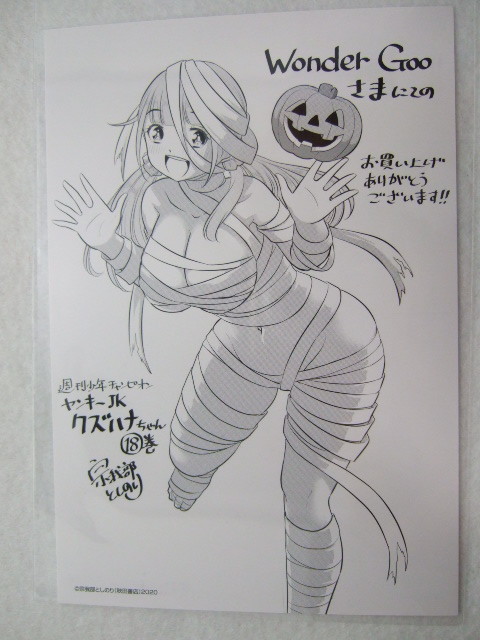 Wonder Goo
さまにての
お買い上げ
ありがとう
ございます!!
週刊少年チャンピオン
ヤンキーJK
クズハナちゃん
⑱巻
宗我部
としのり
©宗我部としのり(秋田書店)2025